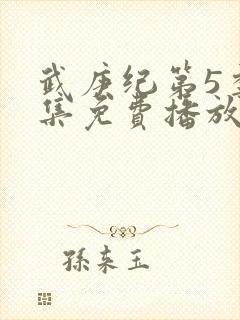 武庚纪第5季
集免费播放
孫来玉